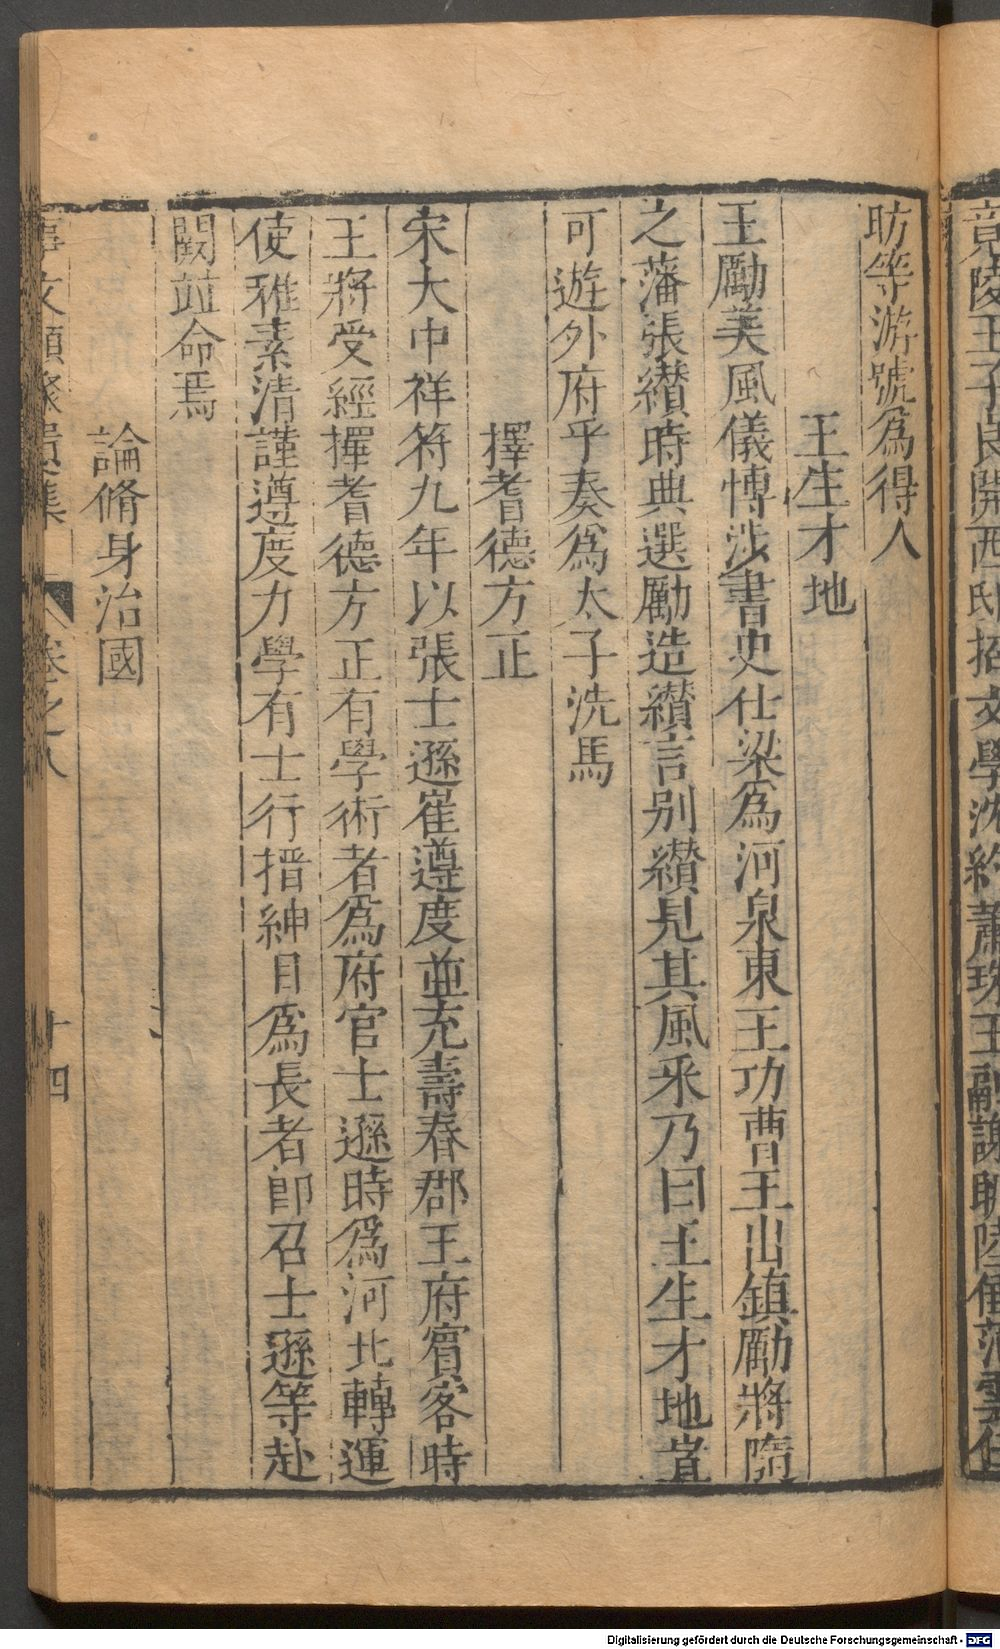 竟陵王子良開西邸招文學沈約蕭琛王融謝朓陸倕范雲任
昉等游號爲得人
王生才地
王勵美風儀博涉書史仕梁爲河泉東王功曹王出鎮勵將隨
之藩張纘時典選勵造纘言别纘見其風采乃曰王生才地豈
可遊外府乎奏爲太子洗馬
擇耆德方正
宋大中祥符九年以張士遜崔遵度並充壽春郡王府賓客時
王將受經擇耆德方正有學術者爲府官士遜時爲河北轉運
使稚素清謹遵度力學有士行搢紳目爲長者卽召士遜等赴
闕並命焉
論脩身治國
事文類聚 集 卷之八 十四
Digitalisierung gefördert durch die Deutsche Forschungsgemeinschaft - DFG